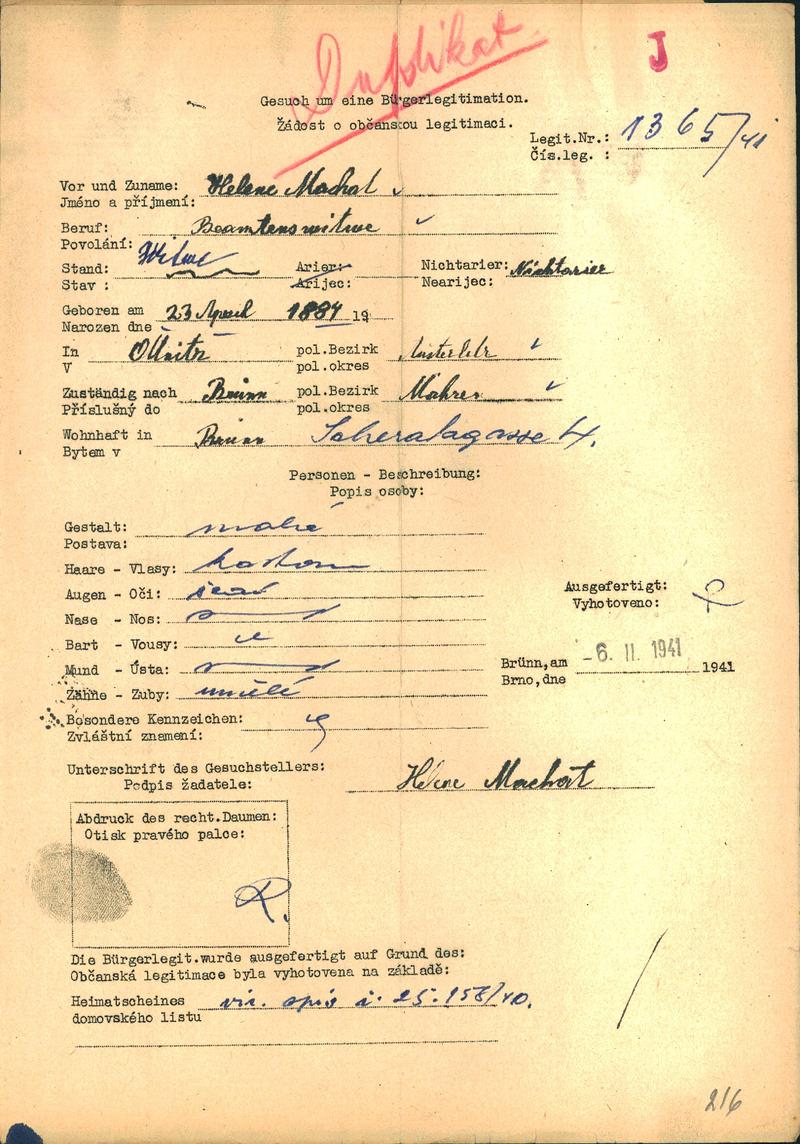 Duplikat
J
Gesuch um eine Bürgerlegitimation.
Žádost o občanskou legitimaci.
Legit.Nr.: 1365/41
Čís.leg. :
Vor und Zuname: Helene Machat
Jméno a příjmení:
Beruf: Beamtenswitwe
Povolání:
Stand: Witwe Arier: Nichtarier: Nichtarier
Stav : Arijec: Nearijec:
Geboren am 23 April 1884 19
Narozen dne
In pol.Bezirk Austerlitz
V pol.okres
Zuständig nach Brünn pol.Bezirk Mähren
Příslušný do pol.okres
Wohnhaft in Brünn 4.
Bytem v
Personen - Beschreibung:
Popis osoby:
Gestalt: malá
Postava:
Haare - Vlasy: kaštan
Augen - Oči: šedé
Nase - Nos:
Bart - Vousy:
Mund - Ústa:
Zähne - Zuby: umělé
Besondere Kennzeichen:
Zvláštní znamení:
Ausgefertigt:
Vyhotoveno:
Brünn,am -6. II. 1941 1941
Brno,dne
Unterschrift des Gesuchstellers: Helene Machat
Podpis žadatele:
Abdruck des recht.Daumen:
Otisk pravého palce:
R.
Die Bürgerlegit.wurde ausgefertigt auf Grund des:
Občanská legitimace byla vyhotovena na základě:
Heimatscheines viz. spis č. 25.158/40.
domovského listu
216